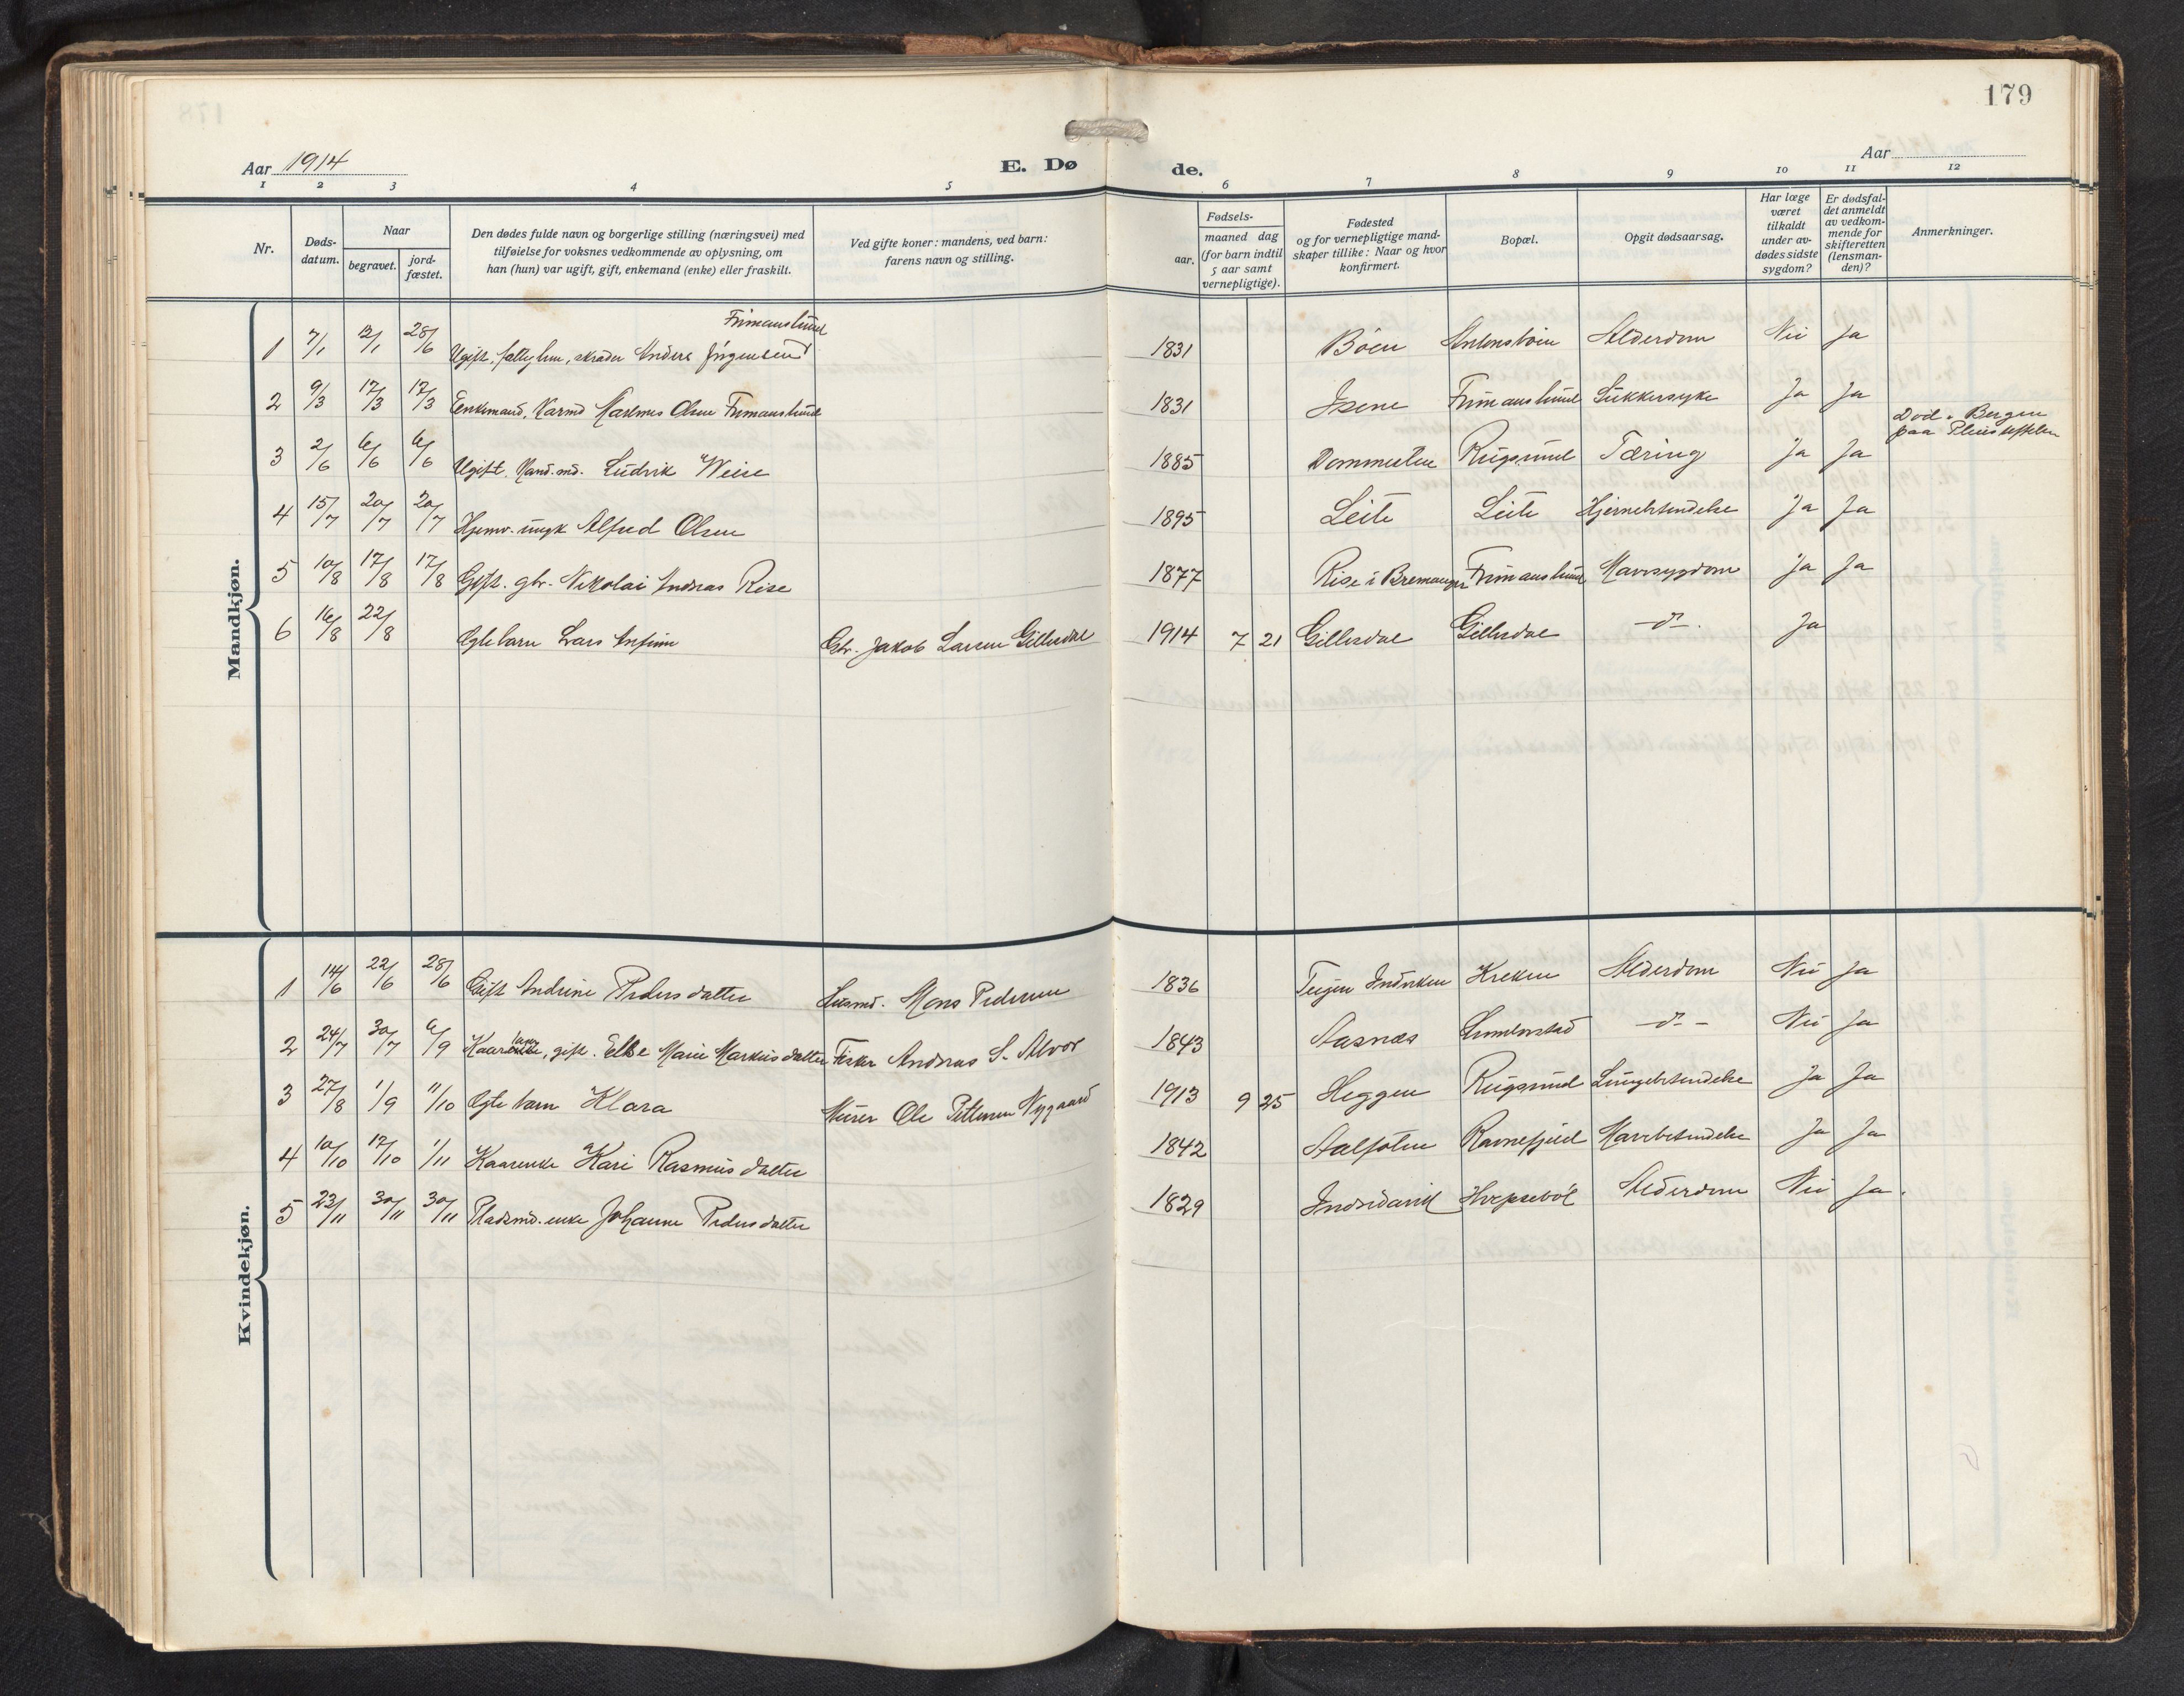 179
Aar 1914
E. Døde.
Aar
1 2 3 4 5 6 7 8 9 10 11 12
Nr.
Døds-
datum.
Naar
begravet.
jord-
fæstet.
Den dødes fulde navn og borgerlige stilling (næringsvei) med
tilføielse for voksnes vedkommende av oplysning, om
han (hun) var ugift, gift, enkemand (enke) eller fraskilt.
Ved gifte koner: mandens, ved barn:
farens navn og stilling.
Fødsels-
aar.
maaned dag
(for barn indtil
5 aar samt
vernepligtige).
Fødested
og for vernepligtige mand-
skaper tillike: Naar og hvor
konfirmert.
Bopæl.
Opgit dødsaarsag.
Har læge
været
tilkaldt
under av-
dødes sidste
sygdom?
Er dødsfal-
det anmeldt
av vedkom-
mende for
skifteretten
(lensman-
den)?
Anmerkninger.
Mandkjøn.
Frimanslund
1 7/1 12/1 28/6 Ugift, fattiglem, skræder Anders Jørgensen 1831 Böen Antonsböen Alderdom Nei Ja
2 9/3 17/3 17/3 Enkemand, Kaarmd Martinus Olsen Frimanslund 1831 Isene Frimanslund Sukkersyke Ja Ja
Död i Bergen
paa Pleiestiftelsen
3 2/6 6/6 6/6 Ugift. Hand.md. Ludvik Weise 1885 Dommesten Rugsund Tæring Ja Ja
4 15/7 20/7 20/7 Hjemv. ungk Alfred Olsen 1895 Leite Leite Hjernebetendelse Ja Ja
5 10/8 17/8 17/8 Gift. gbr. Nikolai Andreas Rise 1877 Rise i Bremanger Frimanslund Mavesygdom Ja Ja
6 16/8 22/8 Ægte barn Lars Anfinn Gbr. Jakob Larsen Gillesdal 1914 7 21 Gillesdal Gillesdal -d°-. Ja
Kvindekjøn.
1 14/6 22/6 28/6 Gift Andrine Pedersdatter Husmd. Mons Pedersen 1836 Teigen Indviken Kreken Alderdom Nei Ja
2 24/7 30/7 6/9 Kaarkone, gift. Else Marie Markusdatter Fisker Andreas S. Alvor 1843 Aasnæs -d°- Nei Ja
3 27/8 1/9 11/10 Ægte barn Klara Murer Ole Pettersen Nygaard 1913 9 25 Heggen Rugsund Lungebetendelse Ja Ja
4 10/10 17/10 1/11 Kaarenke Kari Rasmusdatter 1842 Aalfoten Ravnefjeld Mavebetendelse Ja Ja
5 23/11 30/11 30/11 Pladsmd. enke Johanne Pedersdatter 1829 Indredavik Alderdom Nei Ja.